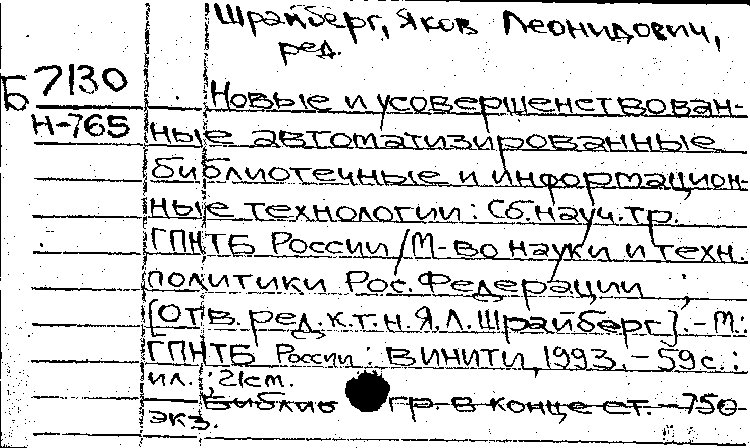 Шрайберг, Яков Леонидович,
ред.
Б 7130
Н-765
Новые и усовершенствован-
ные автоматизированные
библиотечные и информацион-
ные технологии: Сб. науч. тр.
ГПНТБ России / М-во науки и техн.
политики Рос. Федерации ;
[Отв. ред. к.т.н. Я.Л. Шрайберг]. - М.:
ГПНТБ России : ВИНИТИ, 1993. - 59с.:
ил. ; 21см.
Библио гр. в конце ст. - 750
экз.